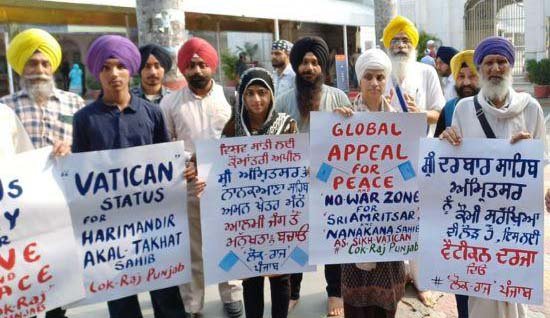 VE
AND
ACE
-RAJ
“VATICAN”
STATUS
FOR
HARIMANDIR
AKAL-TAKHAT
SAHIB
LOK-RAJ PUNJAB
ਵਿਸ਼ਵ ਸ਼ਾਂਤੀ ਲਈ
ਕੌਮਾਂਤਰੀ ਅਪੀਲ
ਸ੍ਰੀ ਅੰਮ੍ਰਿਤਸਰ ਤੇ
ਨਾਨਕਾਣਾ ਸਾਹਿਬ
ਅਮਨ ਖੇਤਰ ਮੰਨੋ
ਆਲਮੀ ਜੰਗ ਤੋਂ
ਮਨੁੱਖਤਾ ਬਚਾਓ
ਲੋਕ-ਰਾਜ
ਪੰਜਾਬ
GLOBAL
APPEAL
FOR
PEACE
NO WAR ZONE
FOR
'SRI AMRITSAR'
'NANAKANA SAHIB'
AS SIKH-VATICAN
LOK-RAJ PUNJAB
ਸ੍ਰੀ ਦਰਬਾਰ ਸਾਹਿਬ
ਅੰਮ੍ਰਿਤਸਰ
ਨੂੰ ਕੌਮੀ ਸੁਰੱਖਿਆ
ਦੀ ਲੋੜ ਹੈ, ਇਸ ਲਈ
ਵੈਟੀਕਨ ਦਰਜਾ
ਦਿਓ
# ਲੋਕ-ਰਾਜ ਪੰਜਾਬ